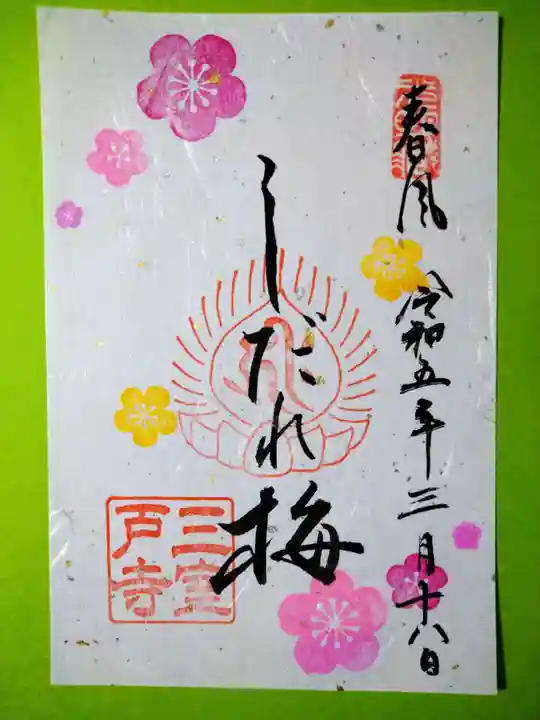 春風 令和五年三月十八日
しだれ梅
三室
戸寺